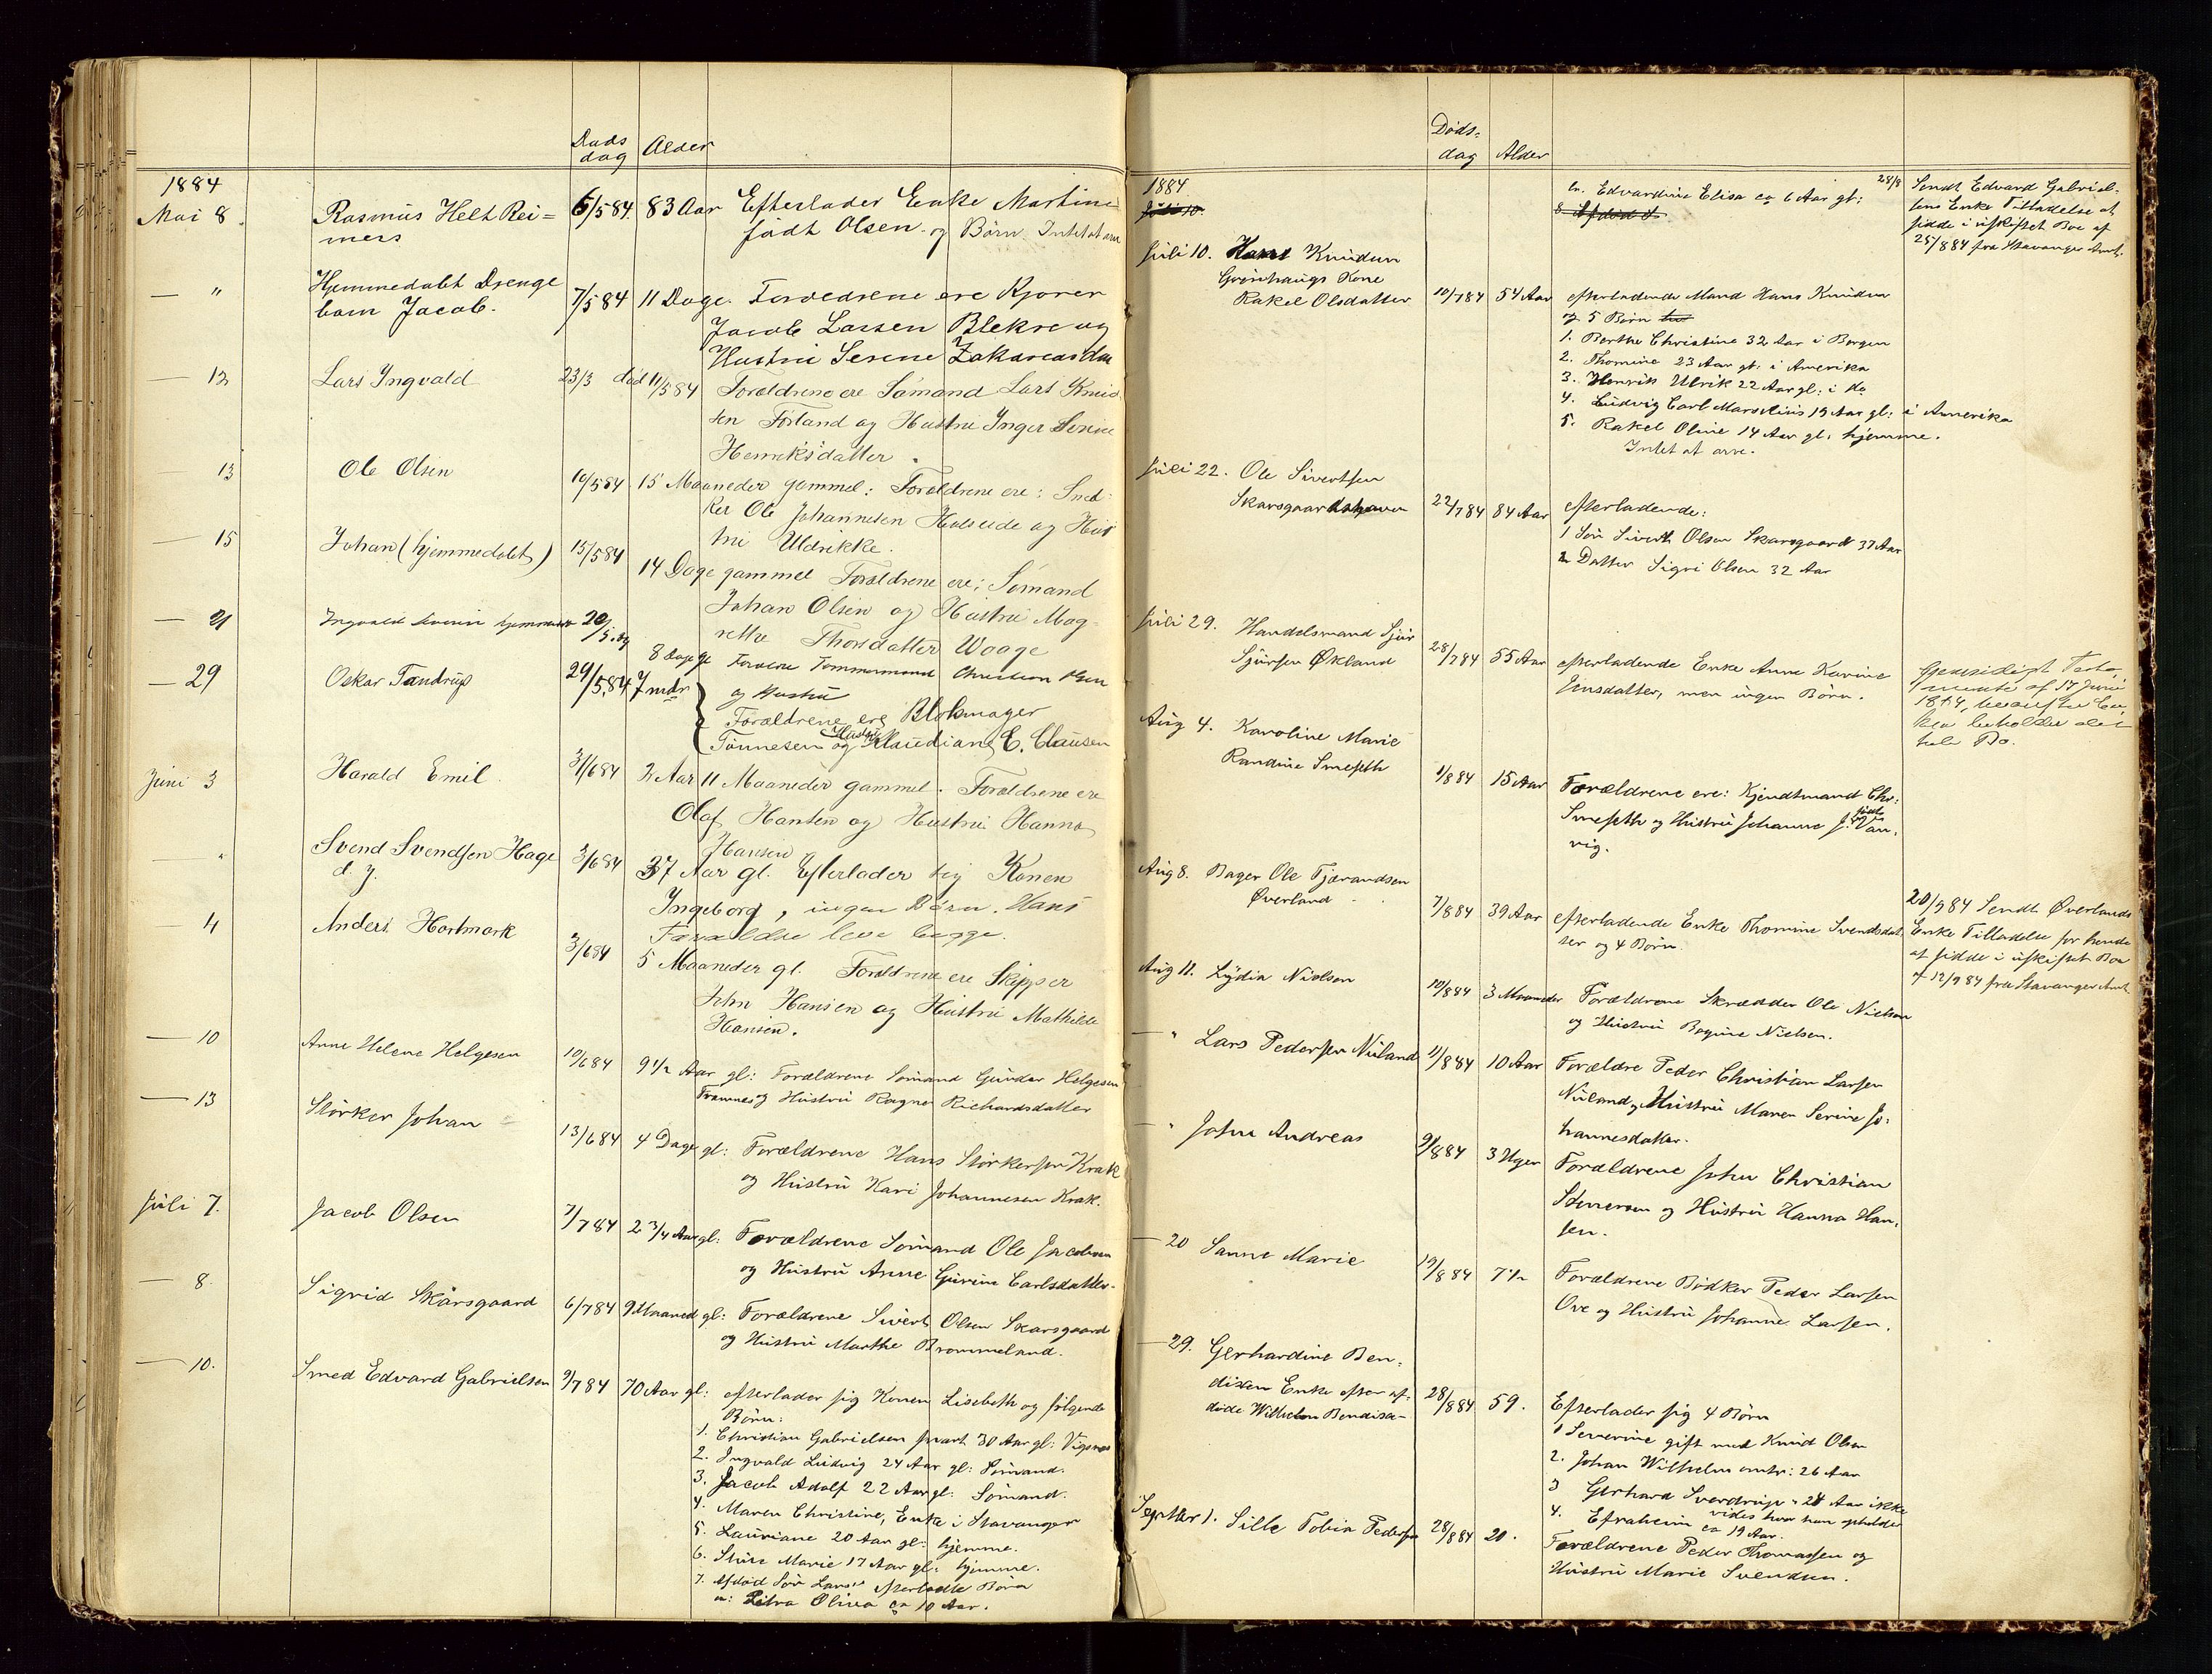 Døds
dag Alder
1884
Mai 8. Rasmus Helt Rei= 6/5 84. 83 Aar Efterlader Enke Martine
mers født Olsen og Børn. Intet at arve
— " Hjemmedøbt Drenge 7/5 84 11 Dage. Forældrene ere Kjører
barn Jacob. Jacob Lassen Blekre og
Hustru Serene Zakariasdtr
— 12 Lars Ingvald 23/3 død 11/5 84 Forældrene ere Sømand Lars Knud
sen Førland og Hustru Inger Serine
Henriksdatter.
13 Ole Olsen 10/5 84 15 Maaneder gammel: Forældrene ere: Sned
ker Ole Johannesen Halseide og Hus
tru Uldrikke.
— 15 Johan (hjemmedøbt) 15/5 84 14 Dage gammel Forældrene ere: Sømand
Johan Olsen og Hustru Mag
rethe Thorsdatter Waage
— 21 Ingvald Severin hjemmedøbt 20/5 84 8 dage gl Forældre Tømmermand Christian Olsen
og Hustru
— 29 Oskar Tandrup 29/5 84 7 mdr Forældrene ere Blokmager
Tønnesen og Hustru Klaudiane E. Clausen
Juni 3 Harald Emil 3/6 84 2 Aar 11 Maaneder gammel. Forældrene ere
Olaf Hansen og Hustru Hanna
Hansen
" Svend Svendsen Hage 3/6 84 37 Aar gl. Efterlader sig Konen
d. y. Ingeborg, ingen Børn. Hans
Forældre leve begge.
4 Anders Hortmark 3/6 84 5 Maaneder gl. Forældrene ere Skipper
John Hansen og Hustru Mathilde
Hansen.
— 10 Anne Helene Helgesen 10/6 84 9 1/2 Aar gl: Forældrene Sømand Gunder Helgesen
Framnes og Hustru Ragna Richardsdatter
— 13 Størker Johan 13/6 84 4 Dage gl: Forældrene Hans Størkersen Krak
og Hustru Kari Johannesen Krak.
Juli 7. Jacob Olsen 7/7 84 2 3/4 Aar gl: Forældrene Sømand Ole Jacobsen
og Hustru Anne Gurine Carlsdatter
— 8. Sigrid Skarsgaard 6/7 84 9 Maaned gl: Forældrene Sivert Olsen Skarsgaard
og Hustru Marthe Brommeland.
— 10. Smed Edvard Gabrielsen 9/7 84 70 Aar gl: efterlader sig Konen Lisebeth og følgende
Børn:
1. Christian Gabrielsen Svart 30 Aar gl: Vigsnes
2. Ingvald Ludvig 24 Aar gl: Sømand.
3. Jacob Adolf 22 Aar gl: Sømand.
4. Maren Christine, Enke i Stavanger
5. Lauriane 20 Aar gl: hjemme.
6. Stine Marie 17 Aar gl: hjemme.
7. Afdød Søn Lars' efterladte Børn
a: Petra Olivia ca 10 Aar.
Døds-
dag Alder
1884
Juli 10.
b. Edvardine Elisa ca 6 Aar gl:
8 Afdød S.
25/8 Sendt Edvard Gabriel-
sens Enke Tilladelse at
sidde i uskiftet Bo af
25/8 84 fra Stavanger Amt.
Juli 10. Hans Knudsen
Grønhaugs Kone
Rakel Olsdatter 10/7 84 54 Aar efterladende Mand Hans Knudsen
og 5 Børn
1. Berthe Christine 32 Aar i Bergen
2. Thomine 23 Aar gl: i Amerika
3. Henrik Ulrik 22 Aar gl: i do
4. Ludvig Carl Marselius 19 Aar gl: i Amerika
5. Rakel Oline 14 Aar gl. hjemme.
Intet at arve.
Juli 22. Ole Sivertsen
Skarsgaardshaven 22/7 84 84 Aar efterladende:
1 Søn Sivert Olsen Skarsgaard 37 Aar
2 Datter Sigri Olsen 32 Aar
Juli 29. Handelsmand Sjur
Sjursen Økland 28/7 84 55 Aar efterladende Enke Anne Karine
Jensdatter, men ingen Børn.
Gjensidigt Testa-
mente af 17 Juni
1874, hvorefter En-
ken beholder det
hele Bo.
Aug 4. Karoline Marie
Randine Smesth 1/8 84 15 Aar Forældrene ere: Kjendtmand Chr:
Smesth og Hustru Johanne J. født Van-
vig.
Aug 8. Bager Ole Tjærandsen
Øverland 7/8 84 39 Aar efterladende Enke Thomine Svendsdat-
ter og 4 Børn.
20/9 84 Sendt Øverlands
Enke Tilladelse for hende
at sidde i uskiftet Bo
af 12/9 84 fra Stavanger Amt
Aug 11. Lydia Nielsen 10/8 84 3 Maaneder Forældrene Skrædder Ole Nielsen
og Hustru Bogine Nielsen.
— " Lars Pedersen Nuland 11/8 84 10 Aar Forældre Peder Christian Larsen
Nuland og Hustru Maren Serine Jo-
hannesdatter.
— " John Andreas 9/8 84 3 Uger Forældrene John Christian
Stenersen og Hustru Hanna Han-
sen.
— 20 Sanne Marie 19/8 84 7 1/2 Forældrene Bødker Peder Larsen
Ove og Hustru Johanne Larsen.
— 29. Gerhardine Ben-
dixen Enke efter af-
døde Wilhelm Bendixen 28/8 84 59. Efterlader sig 4 Børn
1 Severine gift med Knud Olsen
2. Johan Wilhelm omtr: 26 Aar
3 Gerhard Sverdrup 24 Aar ikke
vides hvor han opholder
4. Efraheim ca 19 Aar.
Septbr 1. Sille Tobia Pedersen 28/8 84 20. Forældrene Peder Thomassen og
Hustru Marie Svendsen.